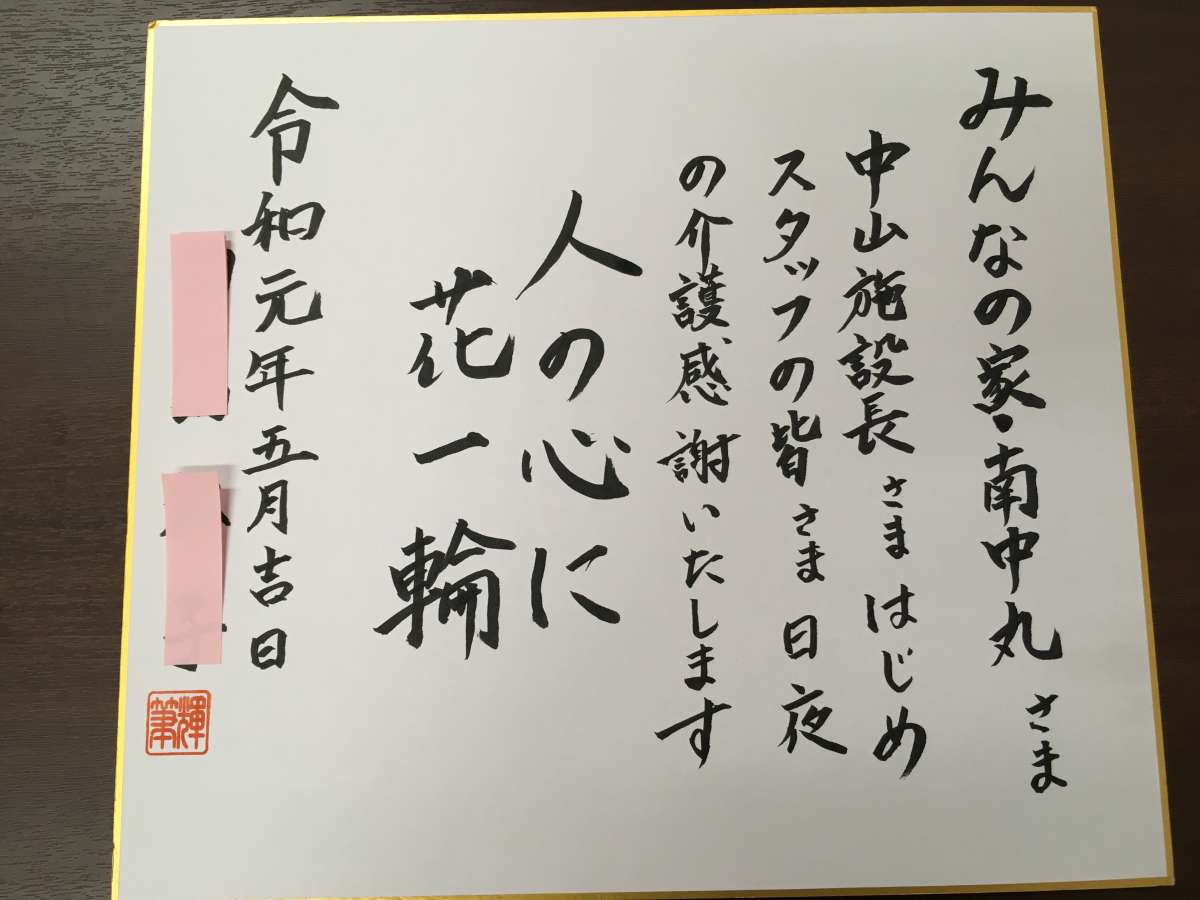 みんなの家・南中丸 さま
中山施設長さま はじめ
スタッフの皆さま 日夜
の介護感謝いたします
人の心に
花一輪
令和元年五月吉日
輝筆